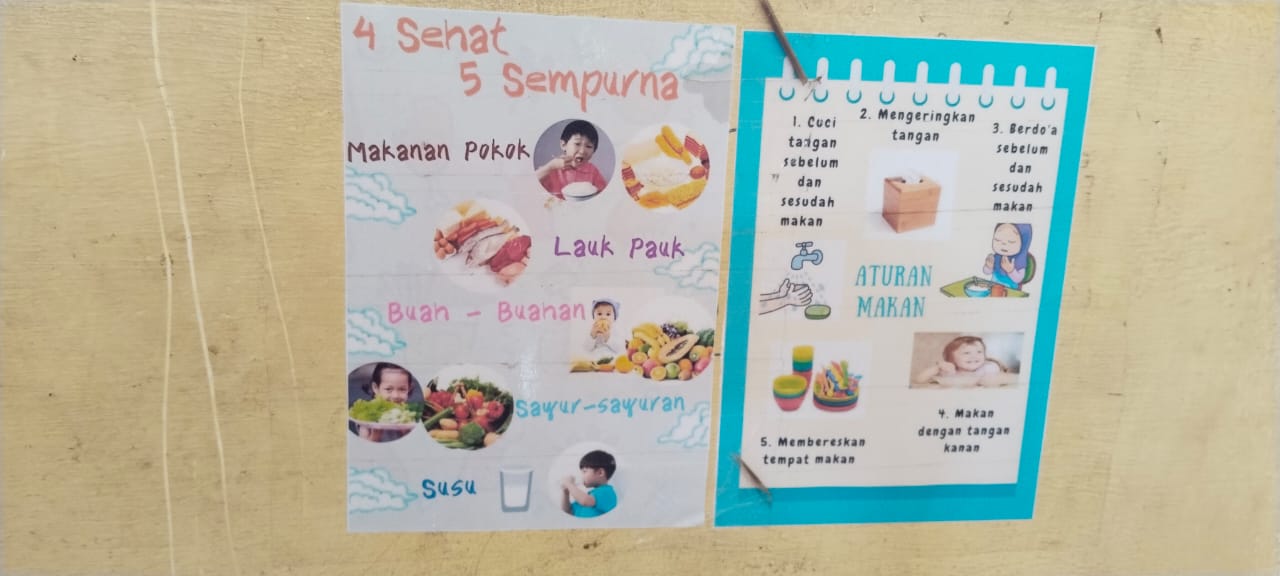 4 Sehat
5 Sempurna
Makanan Pokok
Lauk Pauk
Buah - Buahan
Sayur-sayuran
Susu
1. Cuci
tangan
sebelum
dan
sesudah
makan
2. Mengeringkan
tangan
3. Berdo'a
sebelum
dan
sesudah
makan
ATURAN
MAKAN
4. Makan
dengan tangan
kanan
5. Membereskan
tempat makan